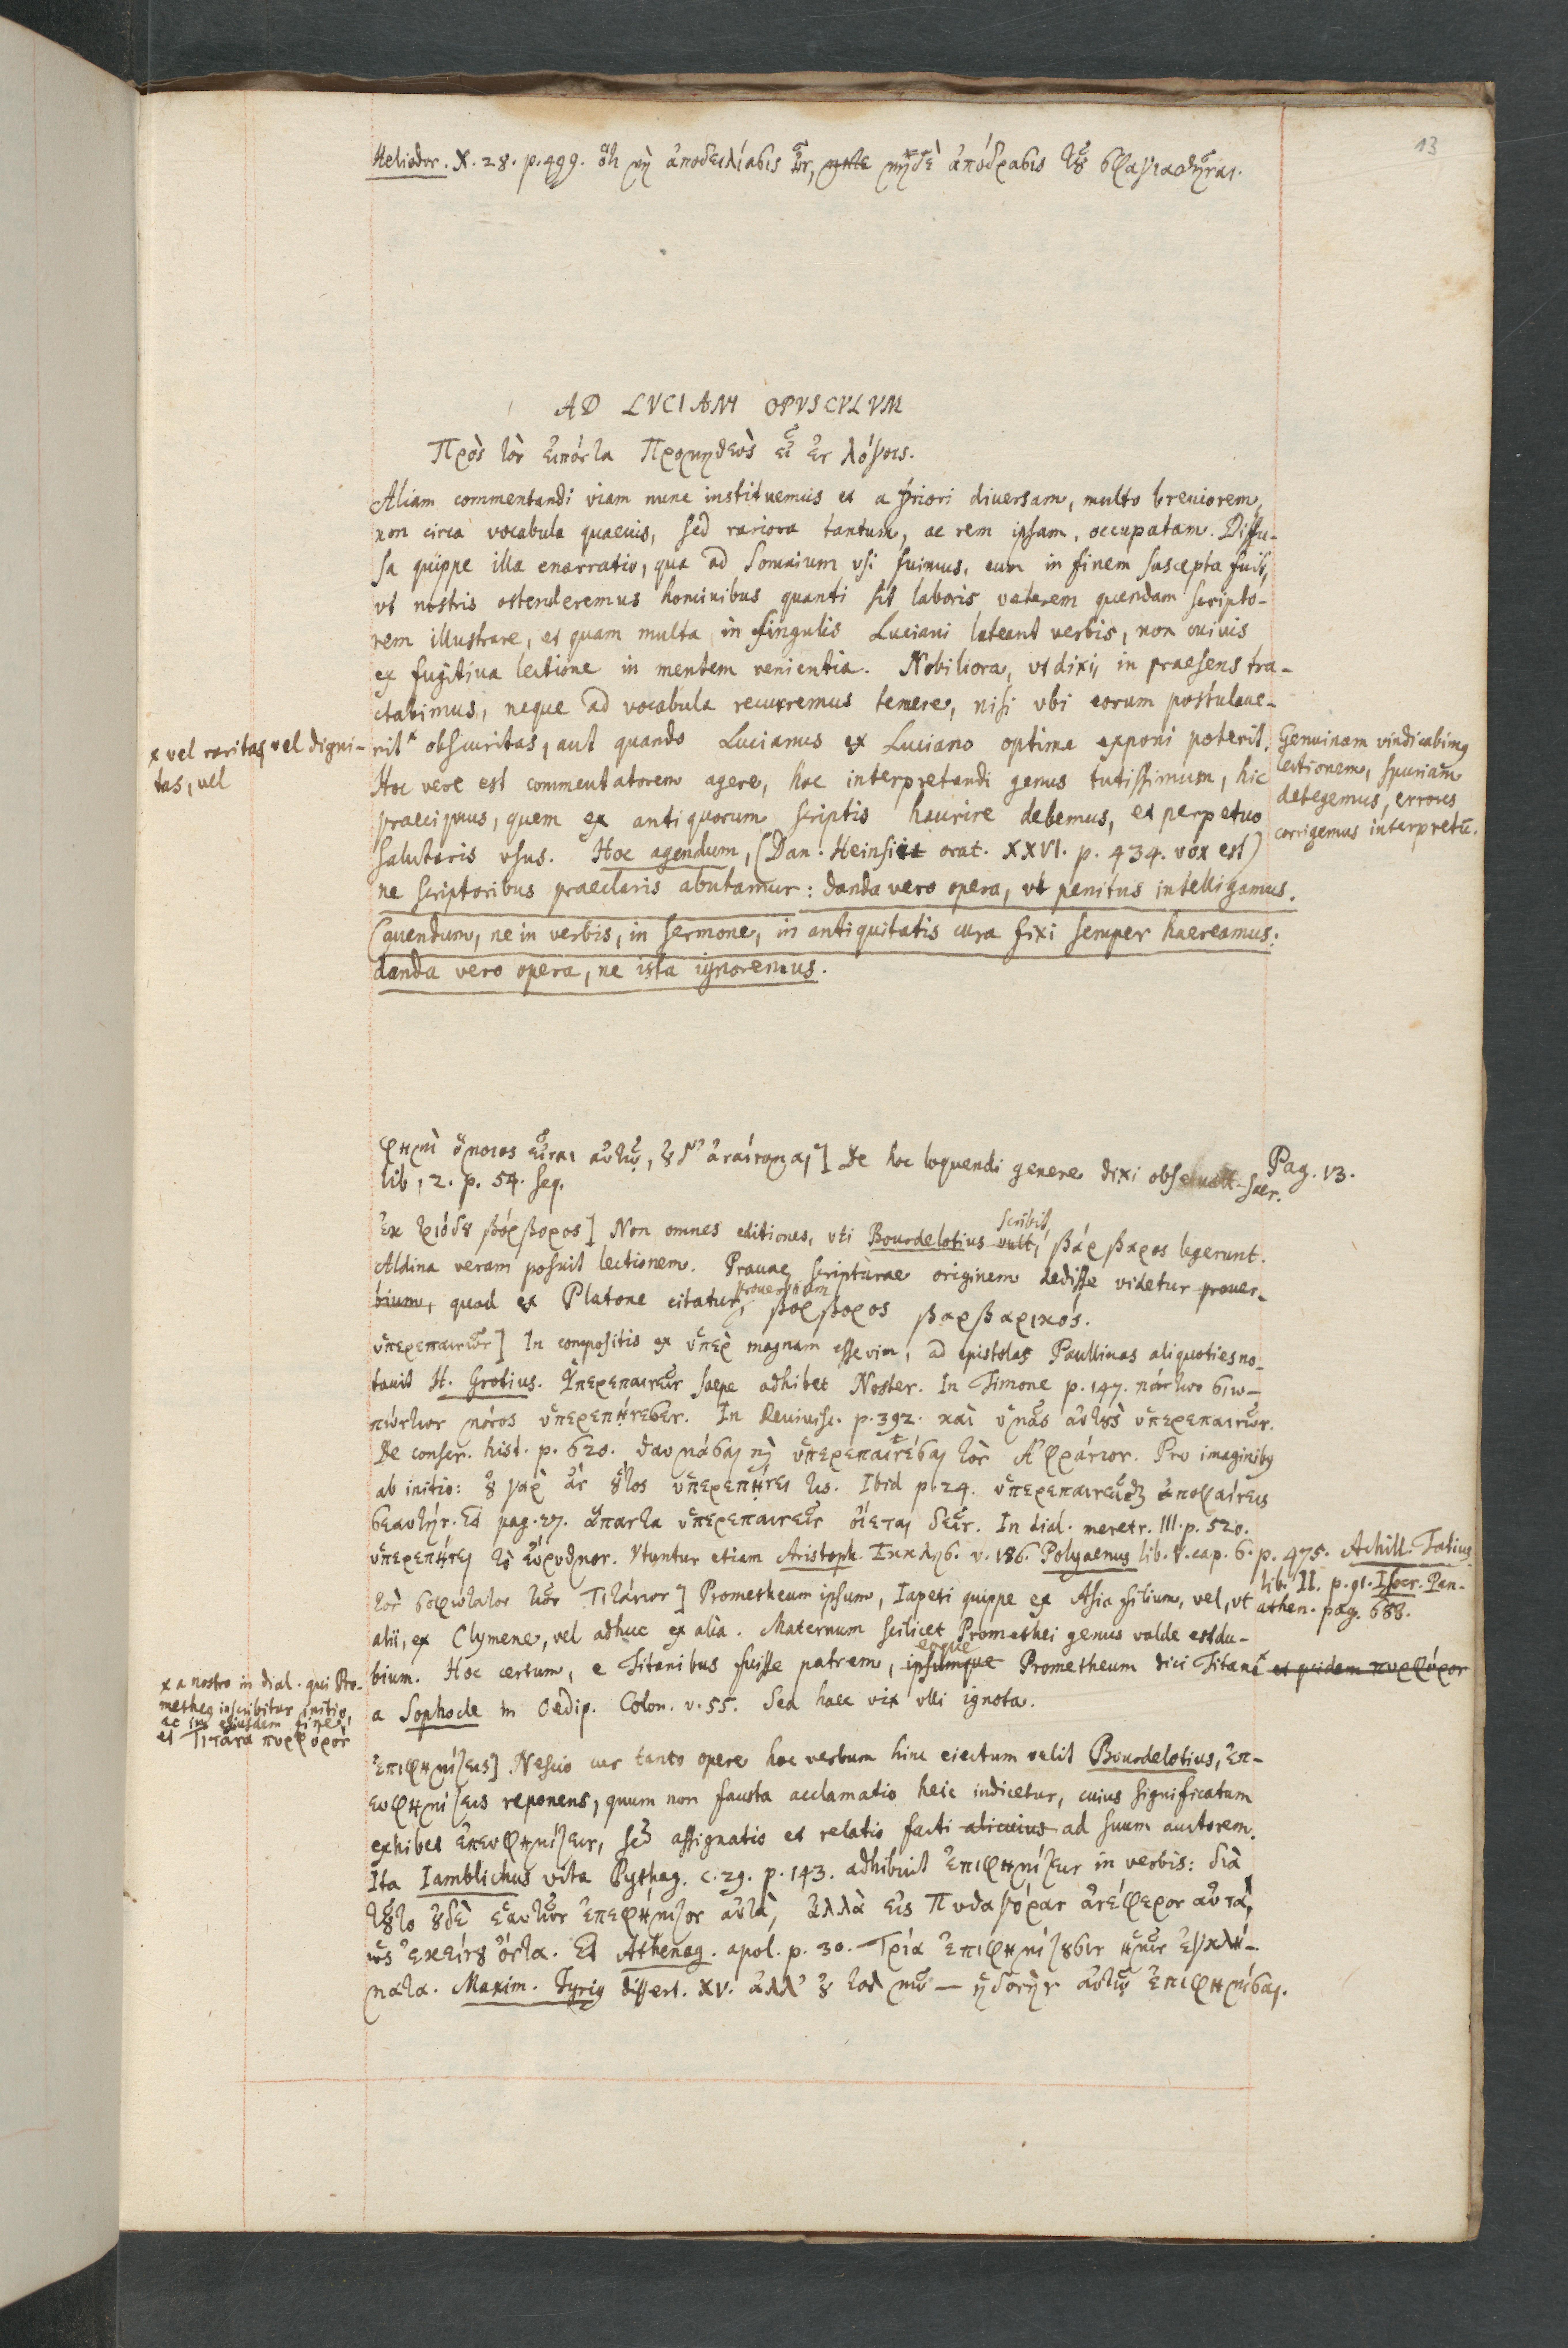 13
Heliodor. X. 28. p. 499. ὅτι μὴ ἀποδειλιάσεις ὢν, μήτε μηδὲ ἀπόδρασις τοῦ
AD LVCIANI OPVSCVLVM
Πρὸς τὸν εἰπόντα Προμηθεὺς εἶ ἐν λόγοις.
Aliam commentandi viam nunc instituemus et a priori diuersam, multo breuiorem,
non circa vocabula quaeuis, sed rariora tantum, ac rem ipsam, occupatam. Diffu-
sa quippe illa enarratio, qua ad Somnium vsi fuimus, eum in finem suscepta fuit,
vt nostris ostenderemus hominibus quanti sit laboris veterem quendam scripto-
rem illustrare, et quam multa in singulis Luciani lateant verbis, non cuiuis
ex fugitiua lectione in mentem venientia. Nobiliora, vt dixi, in praesens tra-
ctabimus, neque ad vocabula recurremus temere, nisi vbi eorum postulaue-
x vel raritas vel digni-
tas, vel
rit x obscuritas, aut quando Lucianus ex Luciano optime exponi poterit.
Genuinam vindicabimus
lectionem, spuriam
detegemus, errores
corrigemus interpretũ.
Hoc vere est commentatorem agere, hoc interpretandi genus tutissimum, hic
praecipuus, quem ex antiquorum scriptis haurire debemus, et perpetuo
salutaris vsus. Hoc agendum, (Dan. Heinsii orat. XXVI. p. 434. vox est)
ne scriptoribus praeclaris abutamur: danda vero opera, vt penitus intelligamus.
Cauendum, ne in verbis, in sermone, in antiquitatis cura fixi semper haereamus:
danda vero opera, ne ista ignoremus.
Pag. 13.
φημὶ ὅμοιος εἶναι αὐτῷ, ȣδ' ἀναίνομαι] De hoc loquendi genere dixi obseruatt. sacr.
lib, 2. p. 54. seq.
ἐκ τριόδȣ βόρβορος] Non omnes editiones, vti Bourdelotius vult, scribit, βάρβαρος legerunt.
Aldina veram posuit lectionem. Prauae scripturae originem dedisse videtur prouer-
bium, quod ex Platone citatur, prouerbium βόρβορος βαρβαρικός.
ὑπερεπαινῶν] In compositis ex ὑπὲρ magnam esse vim, ad epistolas Paullinas aliquoties no-
tauit H. Grotius. Ὑπερεπαινεῖν saepe adhibet Noster. In Timone p. 147. πάντων σιω-
πώντων μόνος ὑπερεπῄνεσεν. In Reuiuisc. p. 392. καὶ ὑμᾶς αὐτȣς ὑπερεπαινῶν.
De conscr. hist. p. 620. θαυμάσαι μὴ ὑπερεπαινέσαι τὸν Ἀφράνιον. Pro imaginibus
ab initio: ȣ γὰρ ἂν ȣτος ὑπερεπῄνει τις. Ibid p. 24. ὑπερεπαινεῖσθαι ἀποφαίνεις
σεαυτήν. Et pag. 27. ἅπαντα ὑπερεπαινεῖν οἴεται δεῖν. In dial. meretr. III. p. 520.
ὑπερεπῄνει τὸ εὔρυθμον. Vtuntur etiam Aristoph. Ἐκκλησ. v. 186. Polyaenus lib. V. cap. 6. p. 475. Achill. Tatius
lib. II. p. 91. Isocr. Pan-
athen. pag. 688.
τὸν σοφώτατον τῶν Τιτάνων] Prometheum ipsum, Iapeti quippe ex Asia filium, vel, vt
alii, ex Clymene, vel adhuc ex alia. Maternum scilicet Promethei genus valde est du-
bium. Hoc certum, e Titanibus fuisse patrem, ipsumque eoque Prometheum dici Titanẽ et quidem πυρφόρον
x a nostro in dial. qui Pro-
metheus inscribitur initio,
ac in eiusdem fine,
et Τιτᾶνα πυρφόρον
a Sophocle in Oedip. Colon. v. 55. Sed haec vix vlli ignota.
ἐπιφημίζεις] Nescio cur tanto opere hoc verbum hinc eiectum velit Bourdelotius, ἐπ-
ευφημίζεις reponens, quum non fausta acclamatio heic indicetur, cuius significatum
exhibet ἐπευφημίζειν, sed assignatio et relatio facti alicuius ad suum auctorem.
Ita Iamblichus vita Pythag. c. 29. p. 143. adhibuit ἐπιφημίζειν in verbis: διὰ
τȣτο ȣδὲ ἑαυτῶν ἐπεφήμιζον αὐτὰ, ἀλλὰ εἰς Πυθαγόραν ἀνέφερον αὐτὰ,
ὡς ἐκείνȣ ὄντα. Et Athenag. apol. p. 30. Τρία ἐπιφημίζȣσιν ἡμῖν ἐγκλή-
ματα. Maxim. Tyrius dissert. XV. ἀλλ' ȣ — ἡδονὴν αὐτῷ ἐπιφημίσαι.